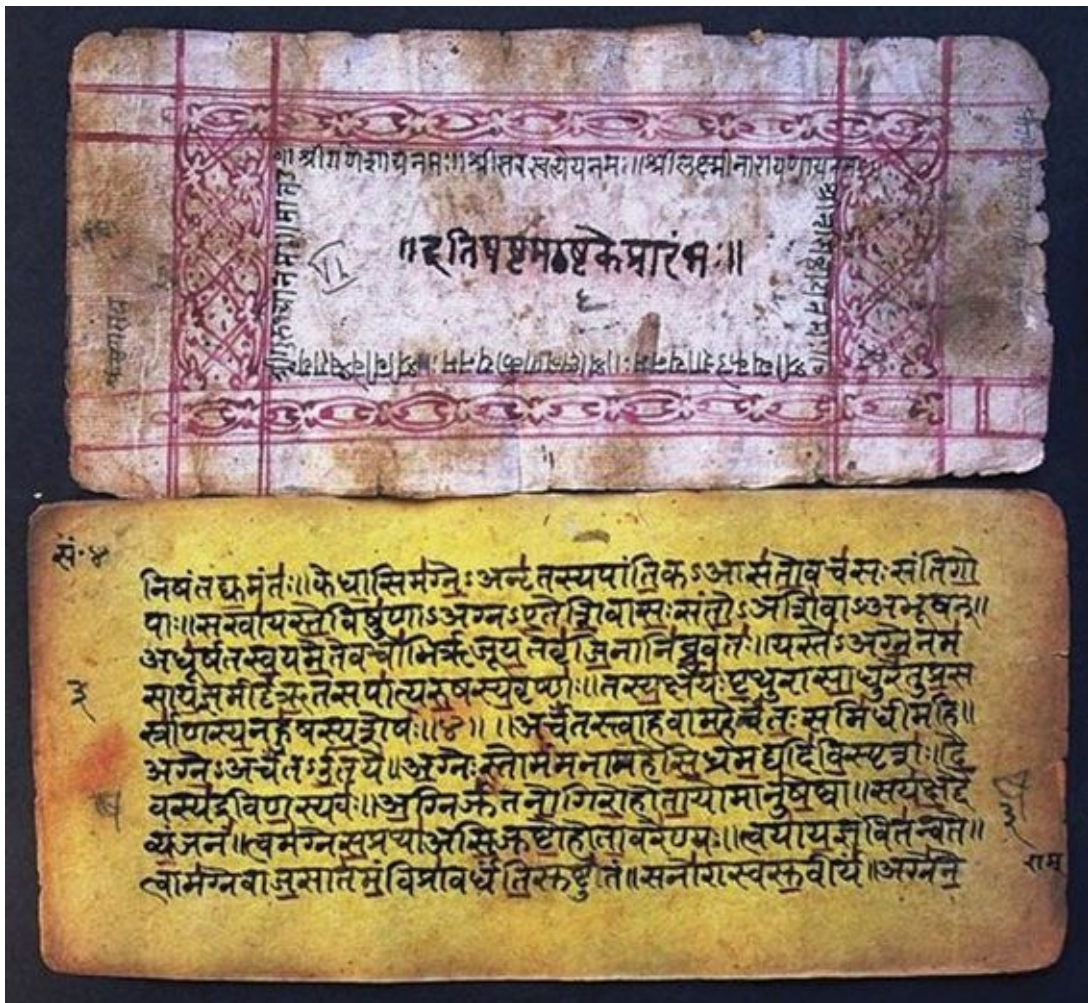 श्रीगणेशायनमः॥श्रीसरस्वत्यैयनमः॥श्रीलक्ष्मीनारायणायनमः
॥इतिषष्टमाष्टकेप्रारंभः॥
VI
६
सं॰४
निषंतद्युमंतः॥केधासिमग्नेऽअनृतस्यपांतिकऽआसतोवचसःसंतिगो
पाः॥सखायस्तेविषुणाऽअग्नऽएतेशिवासःसंतोऽअशिवाऽअभूवन्॥
अधूर्षतस्वयमेतेवचोभिर्ऋजूयतेवृजिनानिब्रुवंतः॥यस्तेऽअग्नेनम
सायज्ञमीट्टऋतंसपात्यरुषस्यवृष्णः॥तस्यक्षयःपृथुरासाधुरेतुप्रस
र्स्राणस्यनहुषस्यशेषः॥४॥ ॥अर्चंतस्त्वाहवामहेर्चंतःसमिधीमहि॥
अग्नेऽअर्चंतऽऊतये॥अग्नेःस्तोमंमनामहेसिध्रमद्यदिविस्पृशः॥दे
वस्यद्रविणस्यवः॥अग्निर्जुषतनोगिरोहोतायोमानुषेष्वा॥सयक्षद्दै
व्यंजनं॥त्वमग्नेसप्रथाअसिजुष्टोहोतावरेण्यः॥त्वयायज्ञंवितन्वते॥
त्वामग्नेवाजसातमंविप्रावर्धंतिसुष्टुतं॥सनोरास्वसुवीर्यं॥अग्नेने
३
३
राम